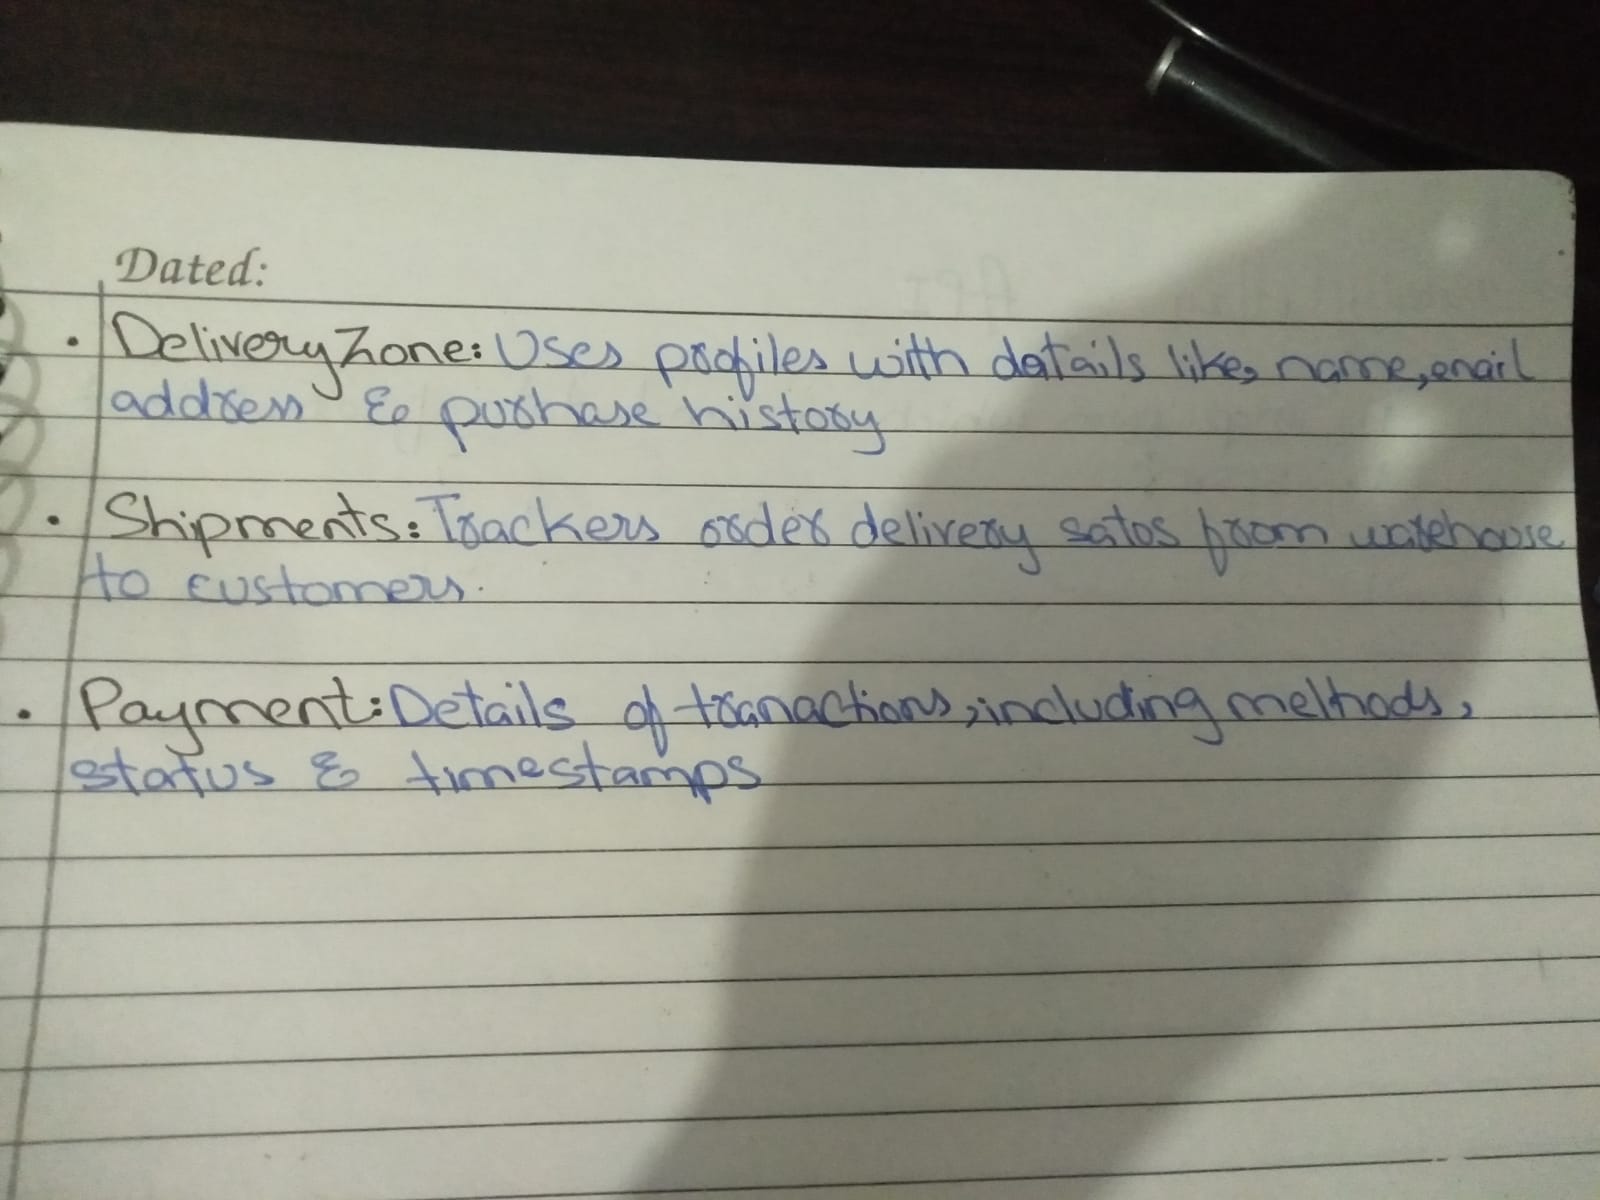 Dated:
• Delivery Zone: Uses profiles with datails like, name, email
address & purhase history
• Shipments: Trackers order delivery satos from warehouse
to customers.
• Payment: Details of tranactions, including methods,
status & timestamps